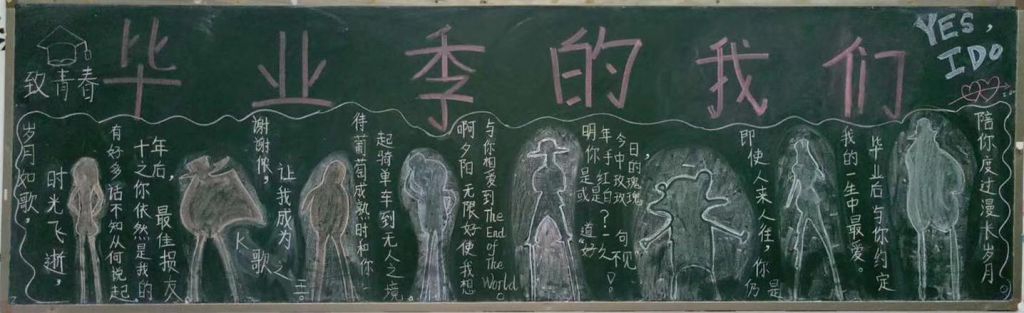 毕业季的我们
致青春
YES,
I DO
岁月如歌，
时光飞逝，
有好多话不知从何说起
十年之后，你依然是我的
最佳损友
谢谢你，
让我成为
K歌之王。
待葡萄成熟时和你
起骑单车到无人之境
啊夕阳无限好使我想
与你相爱到The End of The World
明年今日，
你手中的
是红玫瑰
或是白玫瑰
？！
道一句
“好久不见”
即使人来人往，你仍是
我的一生中最爱。
毕业后与你约定
陪你度过漫长岁月